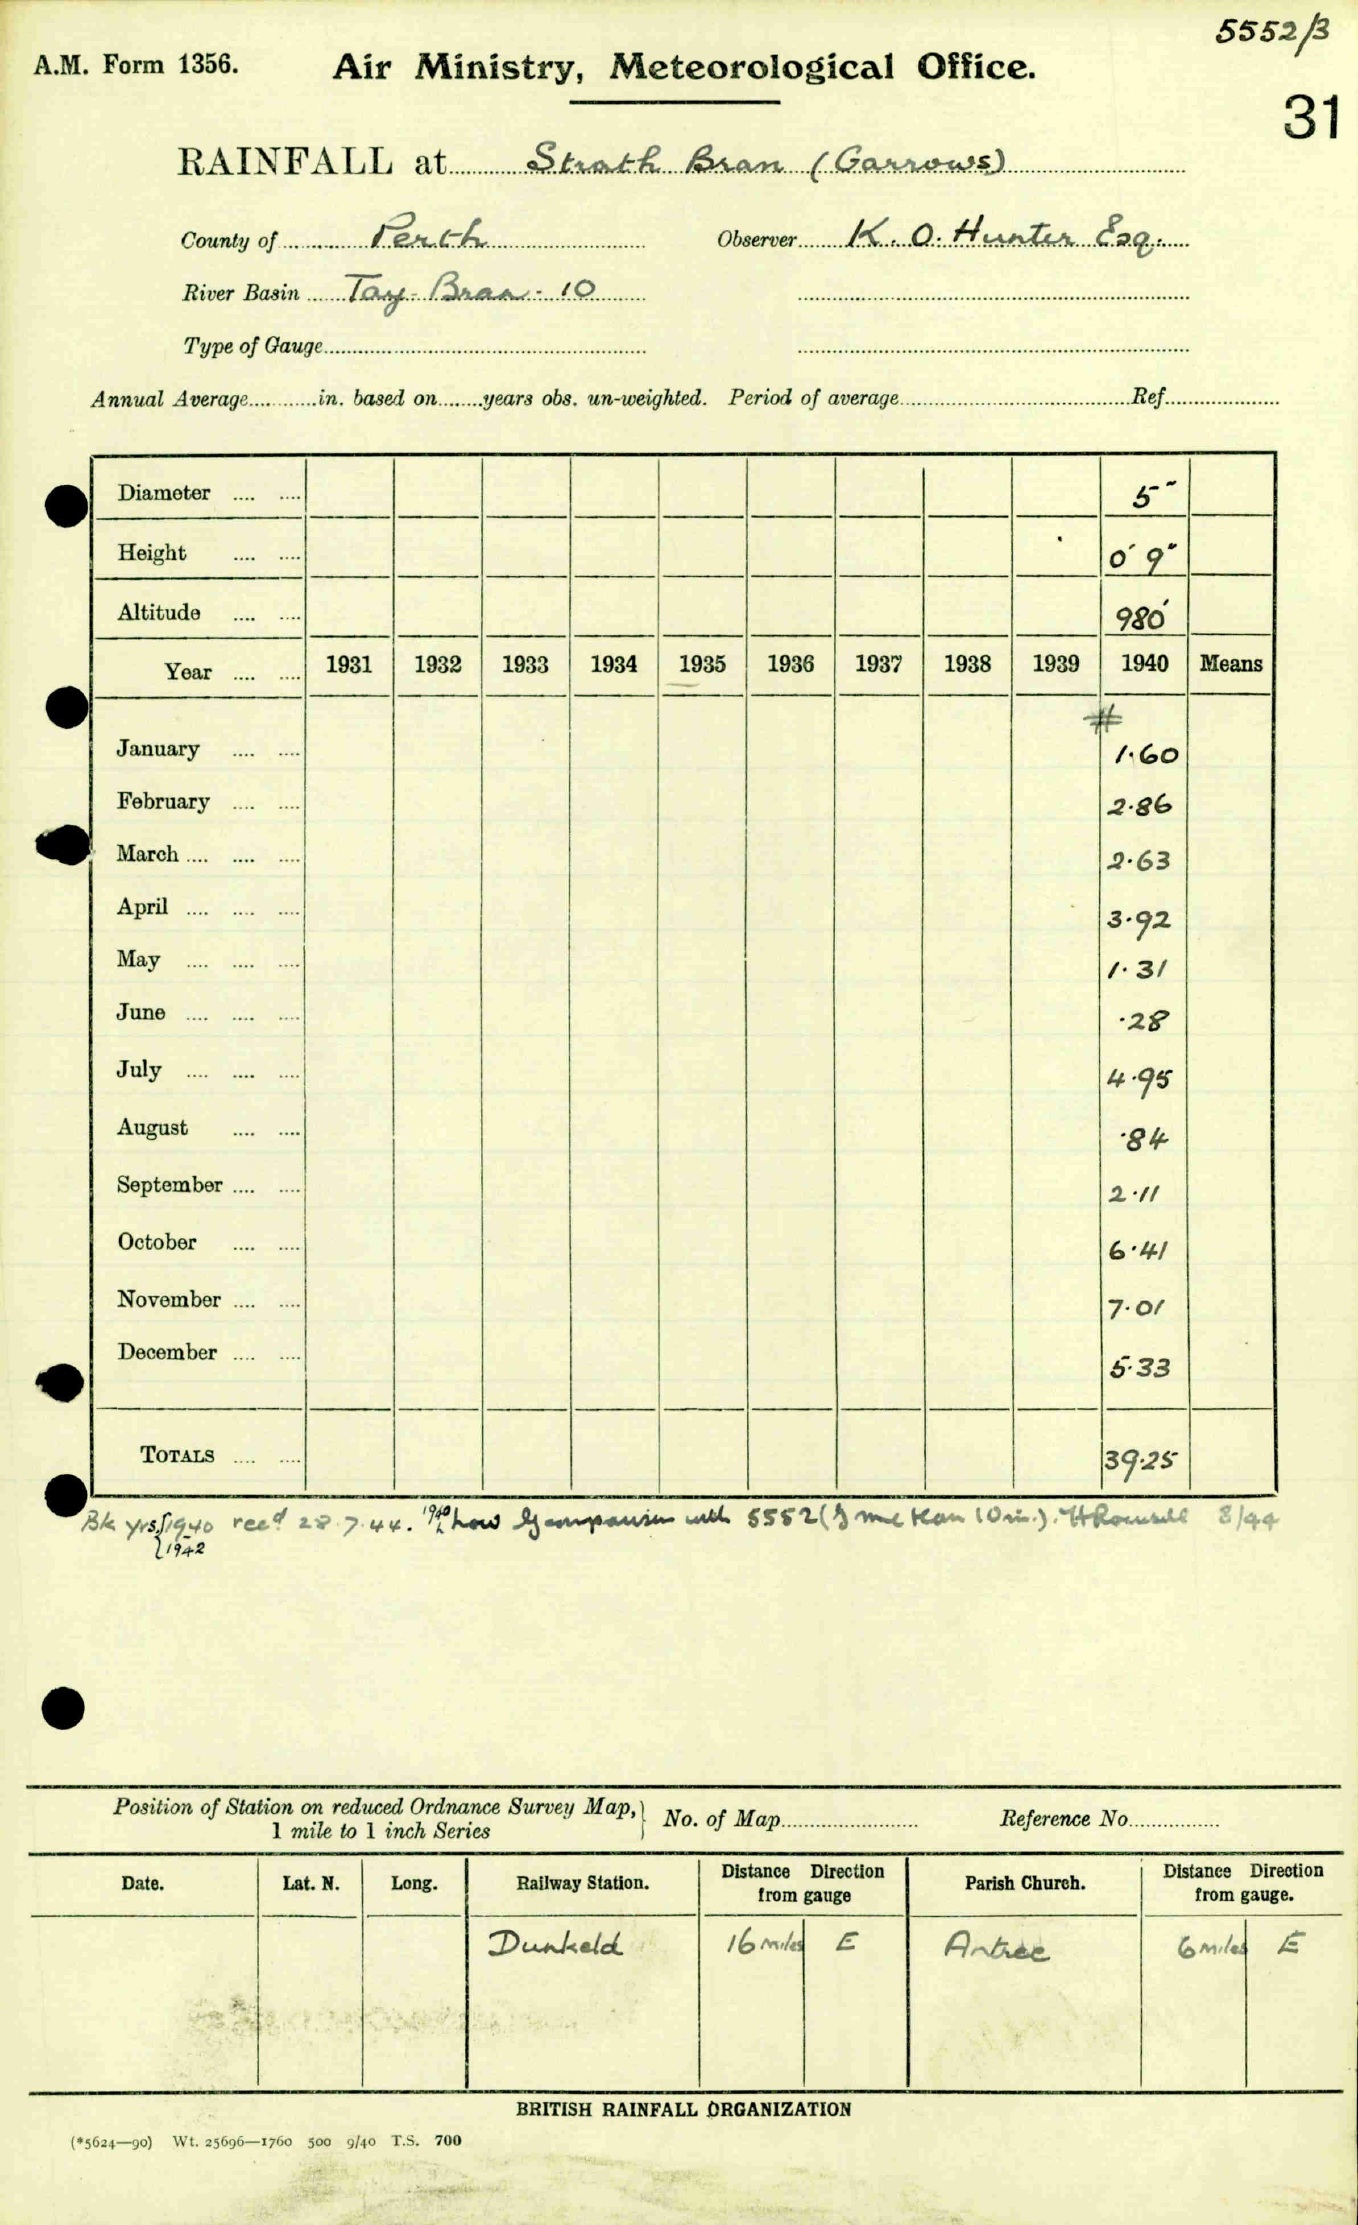 5552/3
A.M. Form 1356. Air Ministry, Meteorological Office.
31
RAINFALL at Strath Bran (Garrows)
County of Perth Observer K. O. Hunter Esq.
River Basin Tay - Bran - 10
Type of Gauge
Annual Average in. based on years obs. un-weighted. Period of average Ref.
Diameter 5"
Height 0' 9"
Altitude 980'
Year 1931 1932 1933 1934 1935 1936 1937 1938 1939 1940 Means
#
January 1.60
February 2.86
March 2.63
April 3.92
May 1.31
June .28
July 4.95
August .84
September 2.11
October 6.41
November 7.01
December 5.33
TOTALS 39.25
Bk yrs {1940 recd 28.7.44. low by comparison with 5552 (by more than 10 in.). 8/44
{1942
Position of Station on reduced Ordnance Survey Map,} No. of Map Reference No.
1 mile to 1 inch Series
Date. Lat. N. Long. Railway Station. Distance Direction from gauge Parish Church. Distance Direction from gauge.
Dunkeld 16 miles E Amtree 6 miles E
BRITISH RAINFALL ORGANIZATION
(*5624—90) Wt. 25696—1760 500 9/40 T.S. 700